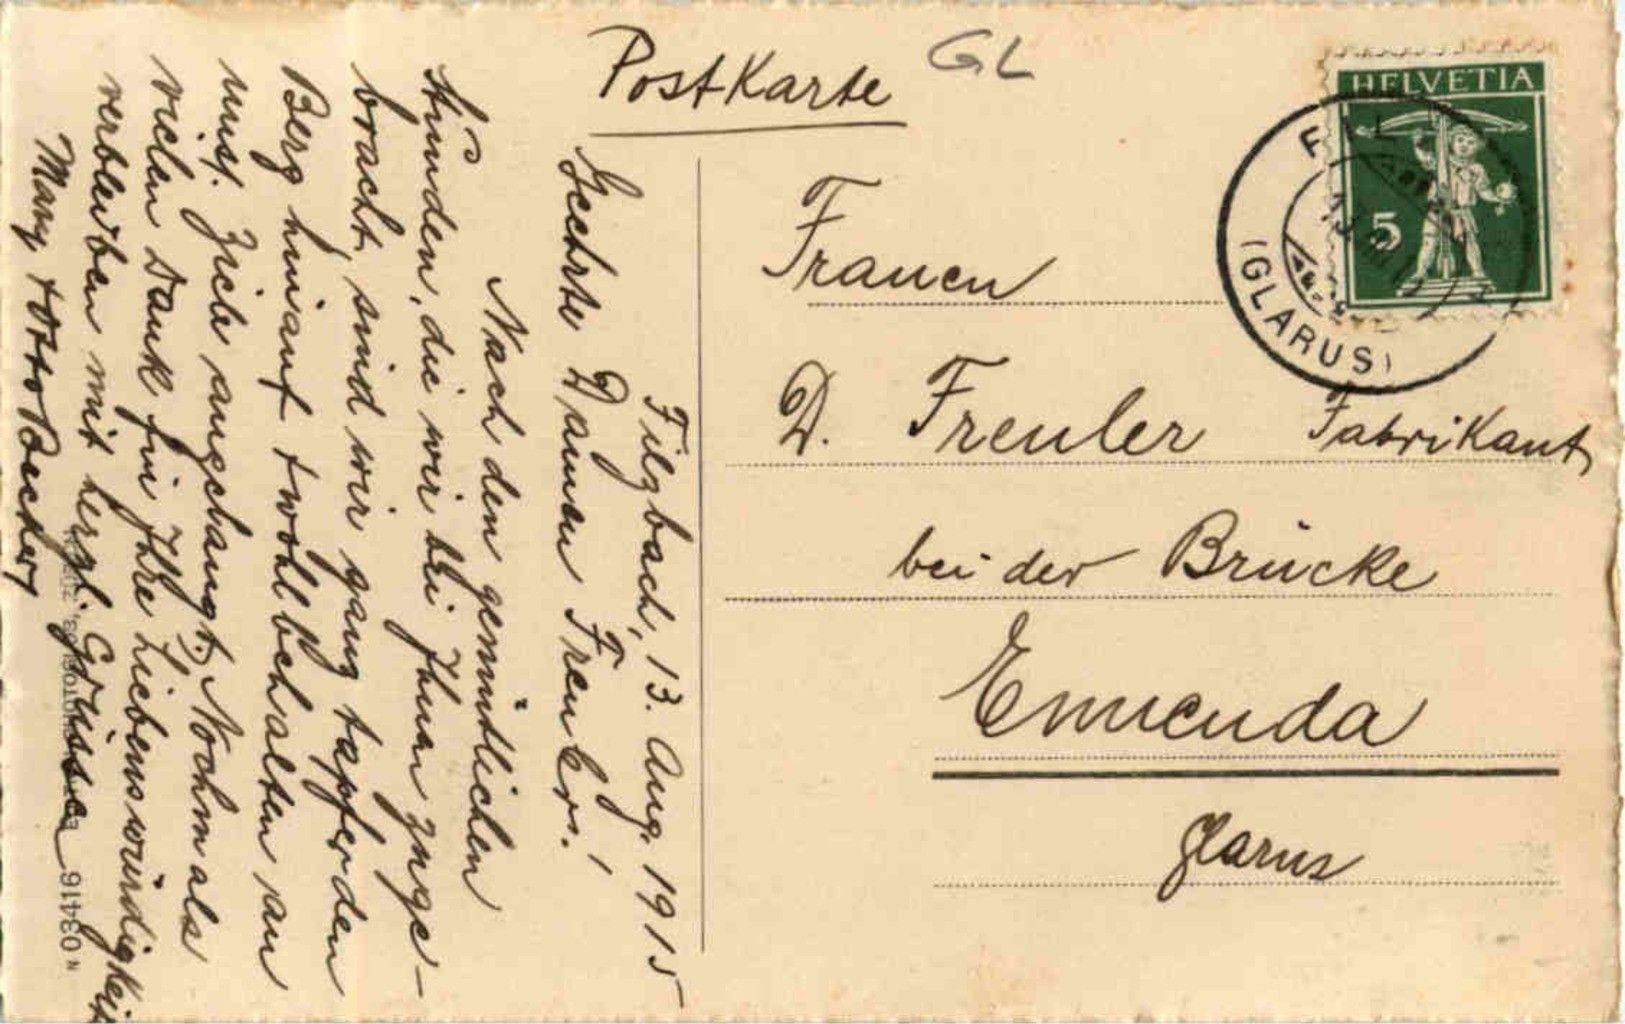 Postkarte GL
HELVETIA
5
(GLARUS)
Frauen
D. Freuler Fabrikant,
bei der Brücke
Ennenda
Glarus
Filzbach, 13. Aug. 1915
Geehrte Damen Freuler!
Nach den gemütlichen
Stunden, die wir bei Ihnen zuge-
bracht, sind wir ganz tapfer den
Berg hinauf & wohlbehalten an
uns. Ziele angelangt. Nochmals
vielen Dank für Ihre Liebenswürdigkeit
verbleiben mit herzl. Grüssen
Mary & Otto
N 03416